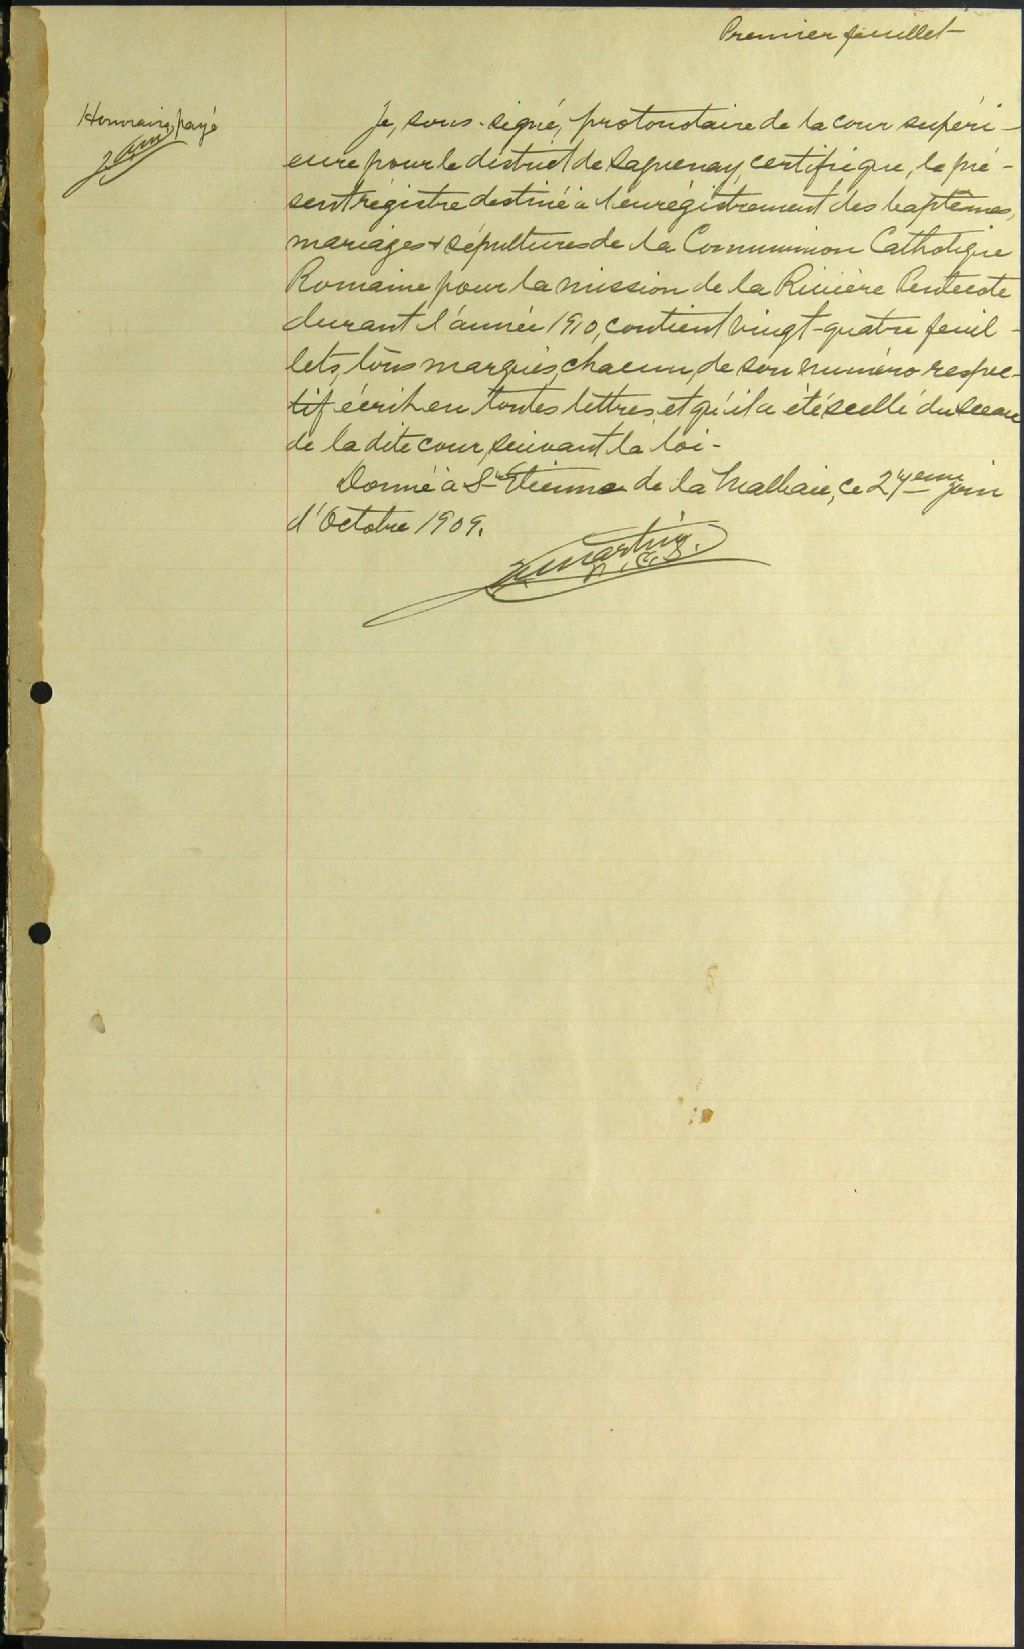 Premier feuillet
Honoraires payé
Je, sous-signé, protonotaire de la cour supéri-
eure pour le district de Saguenay certifie que, le pré-
sent régistre destiné à l'enrégistrement des baptêmes,
mariages & sépultures de la Communion Catholique
Romaine pour la mission de la Rivière Pentecote
durant l'année 1910, contient vingt-quatre feuil-
lets, tous marqués, chacun, de son numéro respec-
tif écrit en toutes lettres, et qu'il a été scellé du sceau
de la dite cour, suivant la loi-
Donné à St Etienne de la Malbaie, ce 27eme jour
d'Octobre 1909.
Martin
P.C.S.